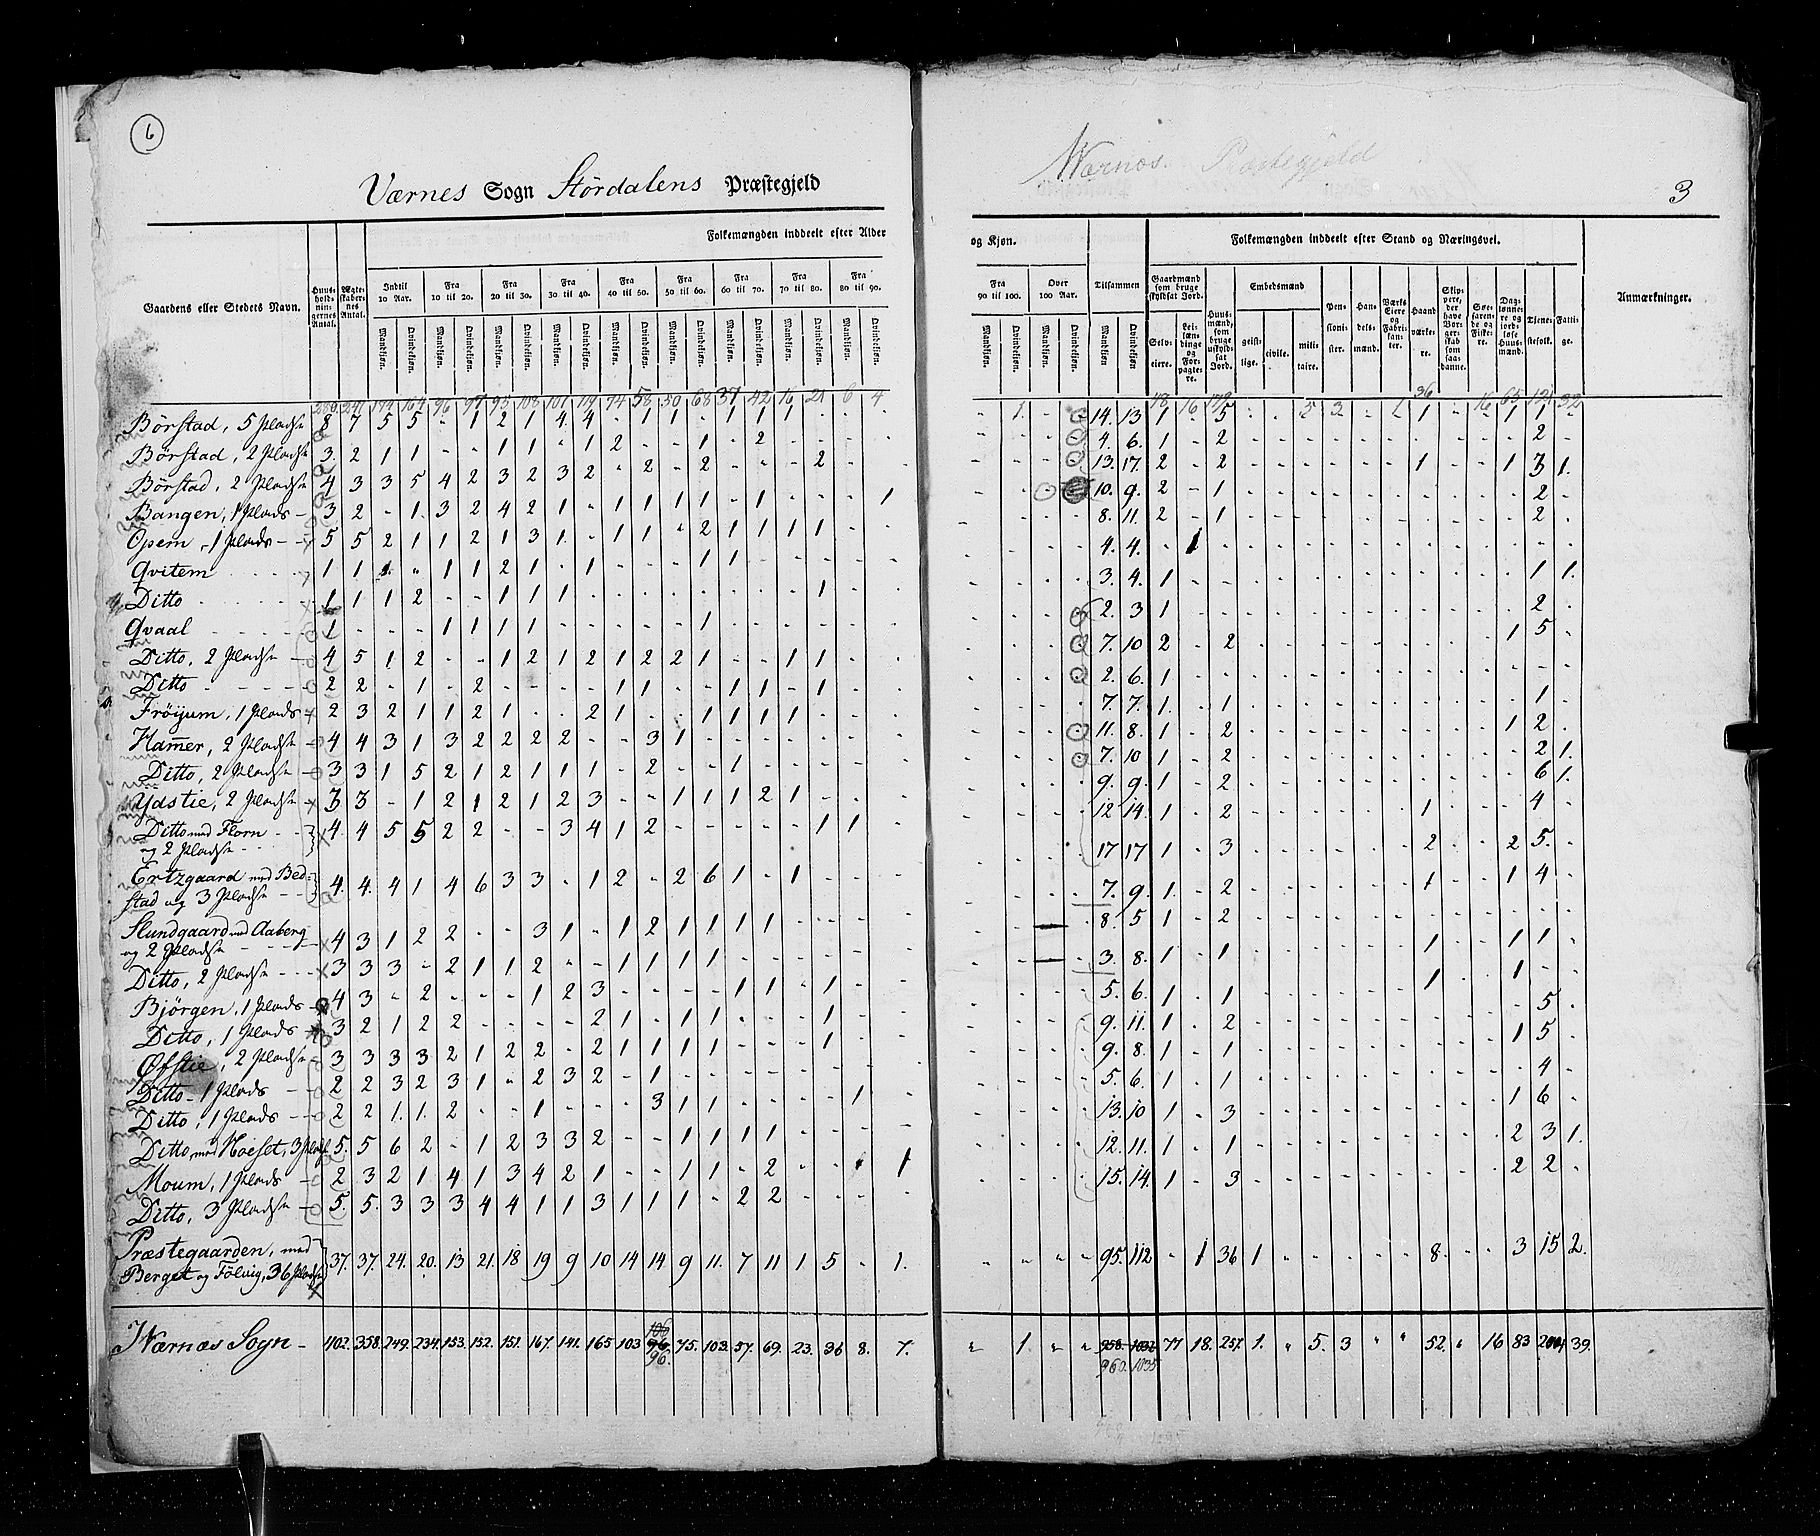 6
Værnes Sogn Størdalens Præstegjeld
Værnes Præstegjeld
3
Gaardens eller Stedets Navn.
Huusholdningernes Antal.
Ægteskabernes Antal.
Folkemængden inddeelt efter Alder
og Kjøn.
Indtil 10 Aar.
Fra 10 til 20.
Fra 20 til 30.
Fra 30 til 40.
Fra 40 til 50.
Fra 50 til 60.
Fra 60 til 70.
Fra 70 til 80.
Fra 80 til 90.
Fra 90 til 100.
Over 100 Aar.
Mandkjøn. Qvindekjøn.
Tilsammen
Folkemængden inddeelt efter Stand og Næringsvei.
Gaardmænd som bruge skyldsat Jord.
Selveiere.
Leilændinge og Forpagtere.
Huusmænd, som bruge uskyldsat Jord.
Embedsmænd
geistlige.
civile.
militaire.
Pensionister.
Handelsmænd.
Værks Eiere og Fabrikanter.
Haandværkere.
Skippere, der have Borgerskab som saadanne.
Søefarende og Fiskere.
Daglønnere og jordløse Huusmænd.
Tjenestefolk.
Fattige.
Anmærkninger.
Børstad, 5 Pladse 8 7 5 5 - 1 2 1 4 4 - 1 1 - 1 1 1 - - - - 14. 13 1 - 5
Børstad, 2 Pladse 3. 2 1 1 - - 1 1 - 1 2 - - 1 - 2 - - - - 4. 6. 1 - 2
Børstad, 2 Pladse 4 3 3 5 4 2 3 2 3 2 - 2 - 2 - - - 2 - - 13. 17. 2 - 2
Bangen, 1 Plads 3 2 - 1. 3 2 4 2 1 - 1 1 1 1 - 1 - - - 1 10. 9. 2 - 1
Opem, 1 Plads 5 5 2 1 1 2 1 3 1. - 1 1 - 2 1 1 1 1 - - 8. 11. 2 - 1
Qvitem 1 1 1. - 1 1 2 1 - 1 - - - 1 1 - - - - - 4. 4. - 1
Ditto 1 1 1 2 - - 1 1 1 - - - - - - - - 1 - - 3. 4. 1
Qvaal 1 - - - 1 1 1 1 - - - - - 1 - - - - - - 2. 3 1
Ditto, 2 Pladse 4 5 1 2 - - 1 2 1 2 1 2 2 1 - - 1 1 - - 7. 10 2 - 2
Ditto 2 2 - 1 - 2 - - - - 1 1 - - 1 1 - 1 - - 2. 6. 1
Frøijum, 1 Plads 2 3 2 1 1 2 1 - - 2 1 - - 1 1 1 1 - - - 7. 7. 1. - 1
Hamer, 2 Pladse 4 4 3 1 3 2 2 2 2 - - 3 1 - - - - - - - 11. 8. 1 - 2
Ditto, 2 Pladse 3 3 1 5 2 1 2 1 1 1 - 2 - - 1 - - - - - 7. 10 1 - 2
Ydstie, 2 Pladse 3 3 - 1 2 1 2 1 2 3 - - 1 1 1 2 1 - - - 9. 9. 1 - 2
Ditto med Florn og 2 Pladse 4. 4 5 5 2 2 - - 3 4 1 2 - - - - - 1 1 - 12 14. 1 - 2
Ertzgaard med Bedstad og 3 Pladse 4. 4. 4 1 4 6 3 3 - 1 2 - 2 6 1 - 1 - - - 17 17 1 - 3
Slundgaard med Aaberg og 2 Pladse 4 3 1 2 2 - - 3 1 - 1 2 1 1 1 1 - - - - 7. 9. 1. - 2
Ditto, 2 Pladse 3 3 3 - 2 1 1 2 - - 1 1 1 1 - - - - - - 8. 5 1 - 2
Bjørgen, 1 Plads 4 3 - 2 - - - 1 2 3 - - - - 1 1 - 1 - - 3. 8. 1 - 1
Ditto, 1 Plads 3 2 1 2 2 - - - - 2 1 - 1 1 - - - 1 - - 5. 6. 1 - 1
Øfstie, 2 Pladse 3 3 3 3 2 1 2 2 - 2 1 1 1 1 - - - 1 - - 9. 11. 1 - 2
Ditto 1 Plads 2 2 3 2 3 1 - 2 3 2 - 1 - - - - - - - - 9. 8. 1 - 1
Ditto, 1 Plads 2 2 1. 1. 2 - - 1 - - - 3 1 1 - - - - 1 - 5. 6. 1 - 1
Ditto, med Hoeset, 3 Pladse 5. 5 6 2 - 1 2 3 3 2 - - 1 1 1 1 - - - - 13. 10 1 - 3
Moum, 1 Plads 2 3 2 1 4 1 3 4 2 1 - - 1 1 - 2 - - - 1 12. 11. 1 - 1
Ditto, 3 Pladse 5. 5. 3 3 3 4 4 1 1 3 1 1 1 - 2 2 - - - - 15. 14. 1 - 3
Præstegaarden, med Berget og Fölvig, 36 Pladse 37. 37. 24. 20. 13 21. 18 19 9 10 14 14 9 11. 7 11 1 5 - 1. 95. 112 - 1 36 1 - - - - - 8. - - 3 15 2.
Værnæs Sogn 402. 358. 249. 234. 153. 152. 151. 167. 141. 165 103 96. 75. 103. 57. 69. 23. 36 8. 7. - 1. - - 958. 1032 77 18. 257. 1. - 5. 3 - - 52. - 16 83 204 39.
960. 1035